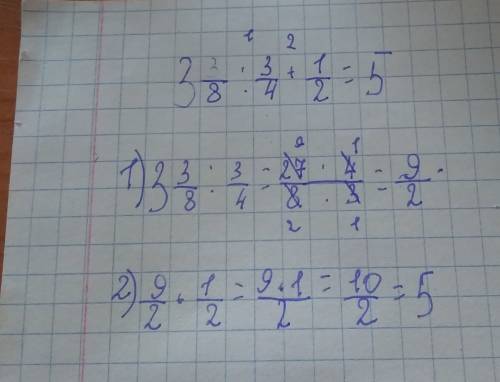 1 2
3 3/8 : 3/4 + 1/2 = 5
1) 3 3/8 : 3/4 = 27 · 4 / 8 · 3 = 9/2
9 1
2 1
2) 9/2 + 1/2 = 9+1/2 = 10/2 = 5